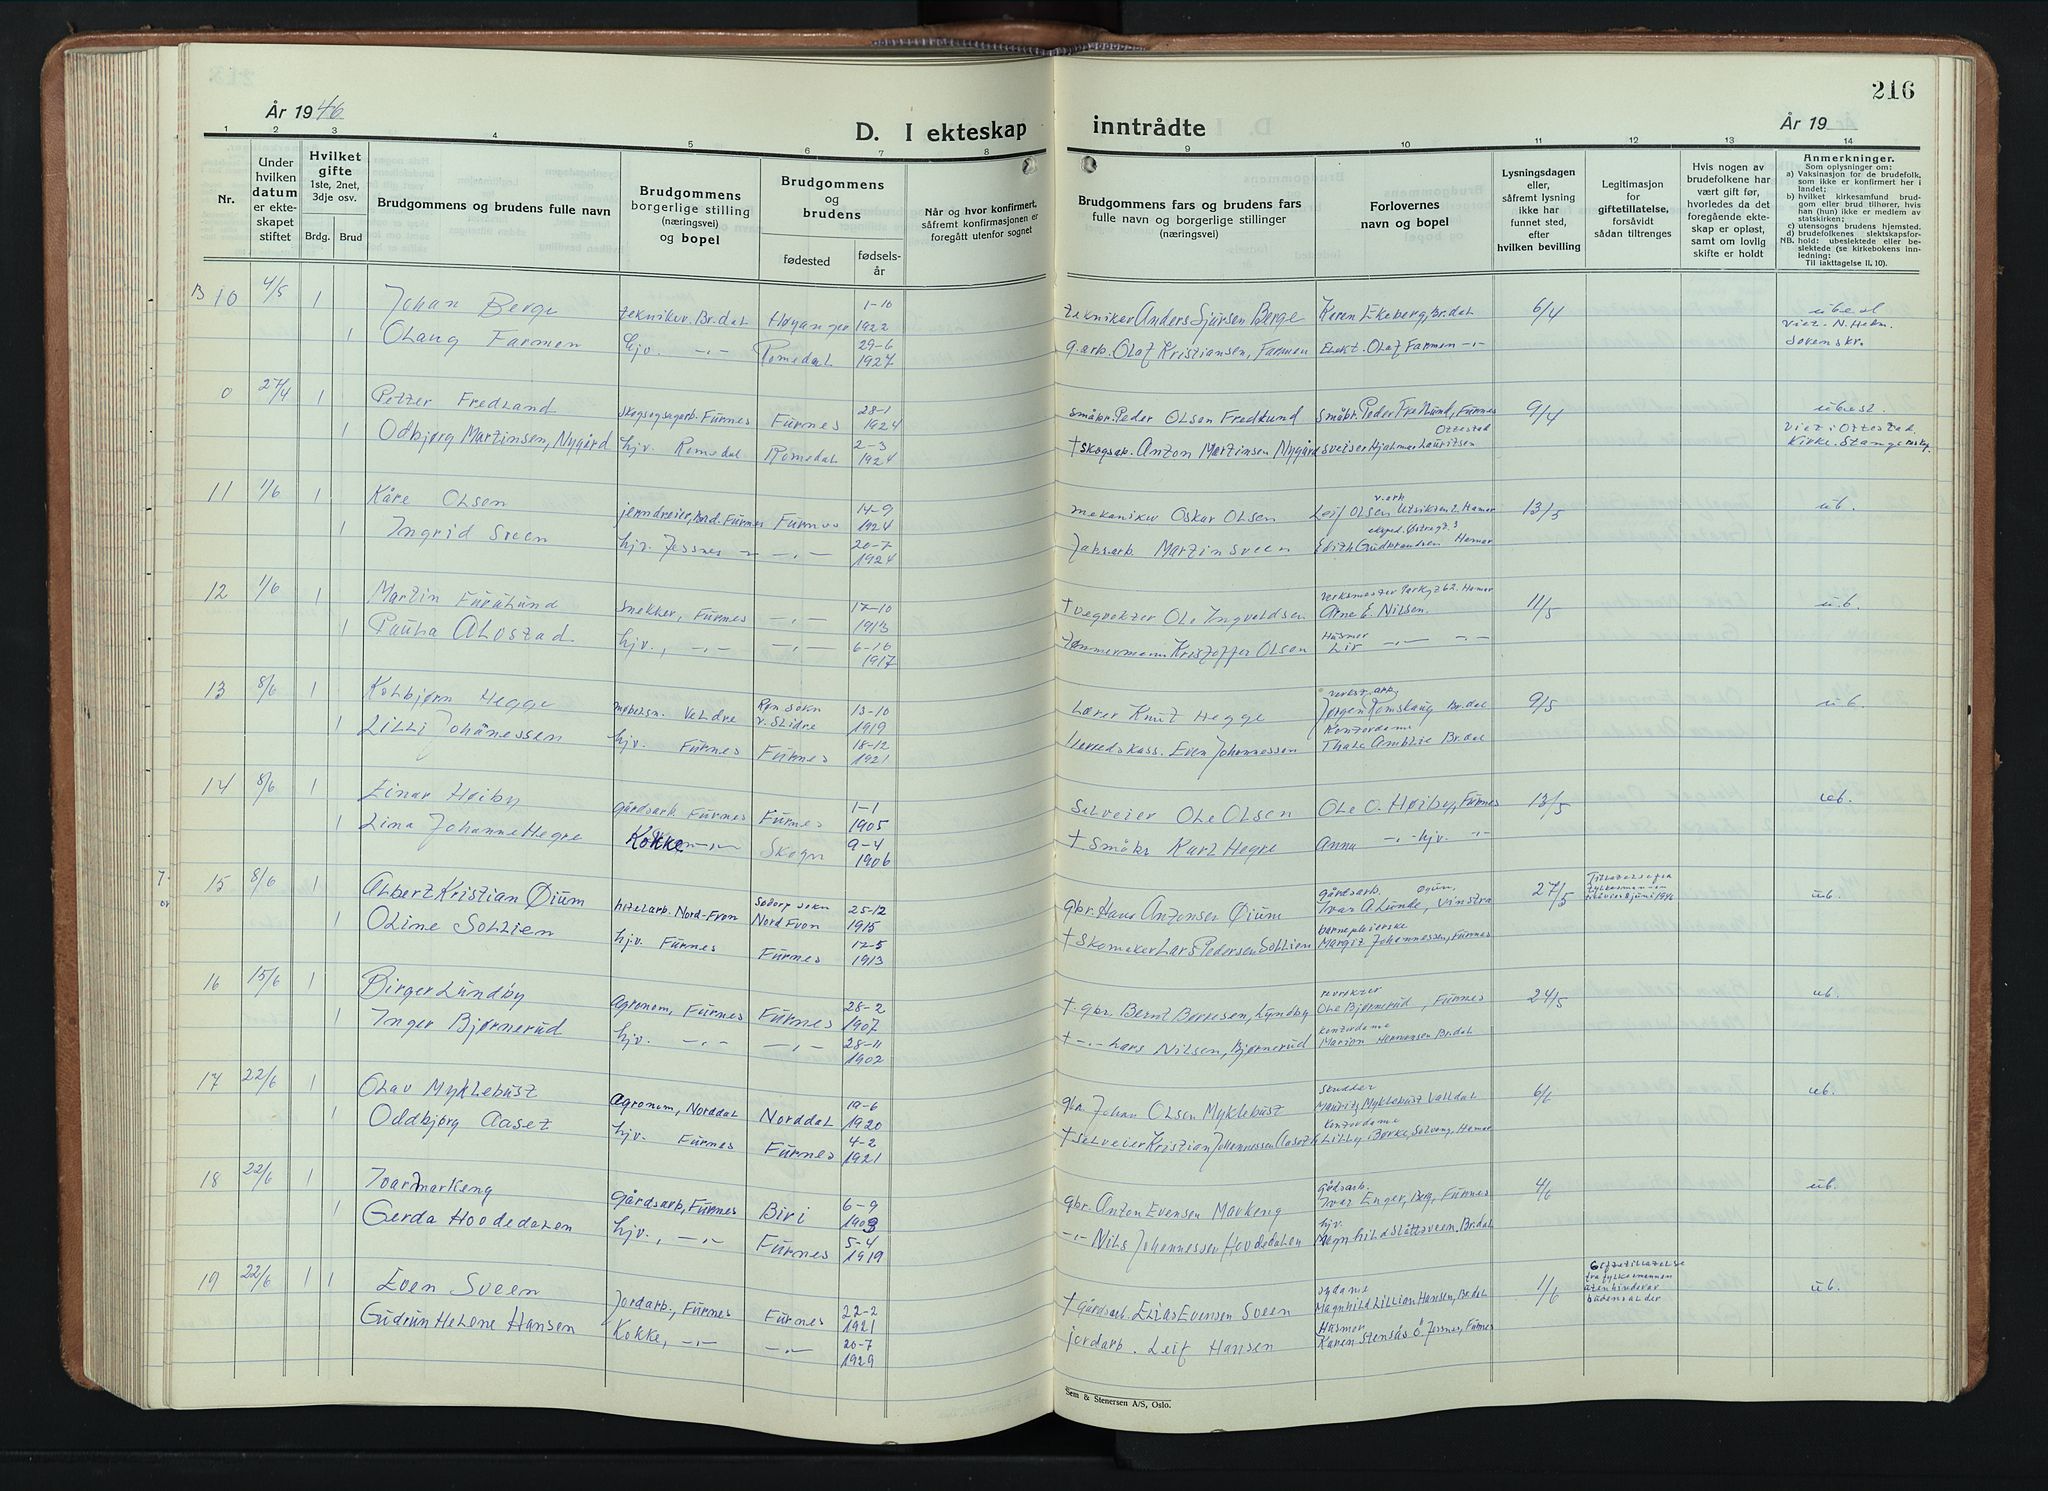 216
År 1946
D. I ekteskap inntrådte
År 19
1 2 3 4 5 6 7 8 9 10 11 12 13 14
Nr.
Under hvilken datum er ekteskapet stiftet
Hvilket gifte 1ste, 2net, 3dje osv.
Brdg. Brud
Brudgommens og brudens fulle navn
Brudgommens borgerlige stilling (næringsvei) og bopel
Brudgommens og brudens
fødested
fødselsår
Når og hvor konfirmert, såfremt konfirmasjonen er foregått utenfor sognet
Brudgommens fars og brudens fars fulle navn og borgerlige stillinger (næringsvei)
Forlovernes navn og bopel
Lysningsdagen eller, såfremt lysning ikke har funnet sted, efter hvilken bevilling
Legitimasjon for giftetillatelse, forsåvidt sådan tiltrenges
Hvis nogen av brudefolkene har vært gift før, hvorledes da det foregående ekteskap er opløst, samt om lovlig skifte er holdt
Anmerkninger.
Som oplysninger om:
a) Vaksinasjon for de brudefolk, som ikke er konfirmert her i landet;
b) hvilket kirkesamfund brudgom eller brud tilhører, hvis han (hun) ikke er medlem av statskirken;
c) utensogns brudens hjemsted.
d) brudefolkenes slektskapsforhold: ubeslektede eller beslektede (se kirkebokens innledning:
NB. Til iakttagelse II, 10).
B 10 4/5 1 Johan Berge tekniker. Br.dal Høyanger 1-10 1922 tekniker Anders Sjursen Berge Karen Ekeberg, Br.dal 6/4 ubesl
1 Olaug Farmen hjv. -"- Romedal 29-6 1924 g.arb. Olaf Kristiansen, Farmen Elekt. Olaf Farmen -"-
0 27/4 1 Petter Fredlund skogsogsagarb. Furnes Furnes 28-1 1924 småbr. Peder Olsen Fredlund Småbr. Peder Fredlund, Furnes 9/4 ubesl. viet i Ottestad Kirke. Stange
1 Odbjørg Martinsen, Nygård hjv. Romedal Romedal 2-3 1924 † skogsarb. Anton Martinsen Nygård sveiser Hjalmar Lauritsen Ottestad
11 1/6 1 Kåre Olsen Furnes Furnes 14-9 1924 mekaniker Oskar Olsen v.arb Leif Olsen Utsikten 2. Hamar 13/5 ub.
1 Ingrid Sveen hjv. Jessnes -"- -"- 20-7 1924 Martin Sveen Edith Gudbrandsen Hamar
12 1/6 1 Martin Furulund Snekker, Furnes -"- 17-10 1913 † vegvokter Ole Ingvaldsen verksmester Parkgt 62. Hamar Arne E. Nilsen. 11/5 u.b.
1 Paula Alvstad hjv., -"- -"- 6-10 1917 Tømmermann Kristoffer Olsen Husmor Liv -"- -"-
13 8/6 1 Kolbjørn Hegge møbelsn. Veldre Røn sokn v. Slidre 13-10 1919 Lærer Knut Hegge verkst.arb. Jørgen Romskaug Br.dal 9/5 u.b.
1 Lilli Johanessen hjv. Furnes Furnes 18-12 1921 Herredskass. Even Johannessen Kontordame Thale Amblie Br.dal
14 8/6 1 Einar Høiby gårdsarb. Furnes Furnes 1-1 1905 selveier Ole Olsen Ole O. Høiby, Furnes 13/5 ub.
1 Lina Johanne Hegre Kokke -"- Skogn 9-4 1906 † småbr Karl Hegre Anna -"- hjv. -"-
15 8/6 1 Albert Kristian Øium hotelarb. Nord-Fron Sødorp sokn Nord Fron 25-12 1915 gbr. Hans Antonsen Øium gårdsarb. Øium, Ivar A. Lunde, Vinstra 27/5 ub.
1 Oline Sollien hjv. Furnes Furnes 12-5 1913 † Skomaker Lars Pedersen Sollien barnepleierske Margit Johannessen, Furnes
16 15/6 1 Birger Lundby Agronom, Furnes Furnes 28-2 1907 † gbr. Bernt Børresen, Lundby Ole Bjørnerud, Furnes 24/5 ub.
1 Inger Bjørnerud hjv. -"- -"- 28-11 1902 † -"- Lars Nilsen, Bjørnerud kontordame Marion Hermansen Br.dal
17 22/6 1 Olav Myklebust Agronom, Norddal Norddal 19-6 1920 gbr. Johan Olsen Myklebust Mauritz Myklebust Valldal 6/6 ub.
1 Oddbjørg Aaset hjv. Furnes Furnes 4-2 1921 † selveier Kristian Johannessen Aaseth kontordame Lilly Børke, Solvang, Hamar
18 22/6 1 Ivar Markeng Gårdsarb, Furnes Biri 6-9 1903 gbr. Anton Evensen Markeng Gårdsarb. Ivar Enger, Berg, Furnes 4/6 ub.
1 Gerda Hovdedalen hjv., -"- Furnes 5-4 1919 -"- Nils Johannessen Hovdedalen hjv. Magnhild Slåttsveen, Br.dal
19 22/6 1 1 Even Sveen Jordarb., Furnes Furnes 22-2 1921 † Gårdsarb. Elias Evensen Sveen sydame Magnhild Lillian Hansen, Br.dal 1/6 Giftetillatelse fra fylkesmannen uten hinder av brudens alder ub.
Gudrun Helene Hansen Kokke, -"- -"- 20-7 1929 jordarb. Leif Hansen Husmor Karen Stensås Ø. Jessnes, Furnes
Sem & Stenersen A/S, Oslo.